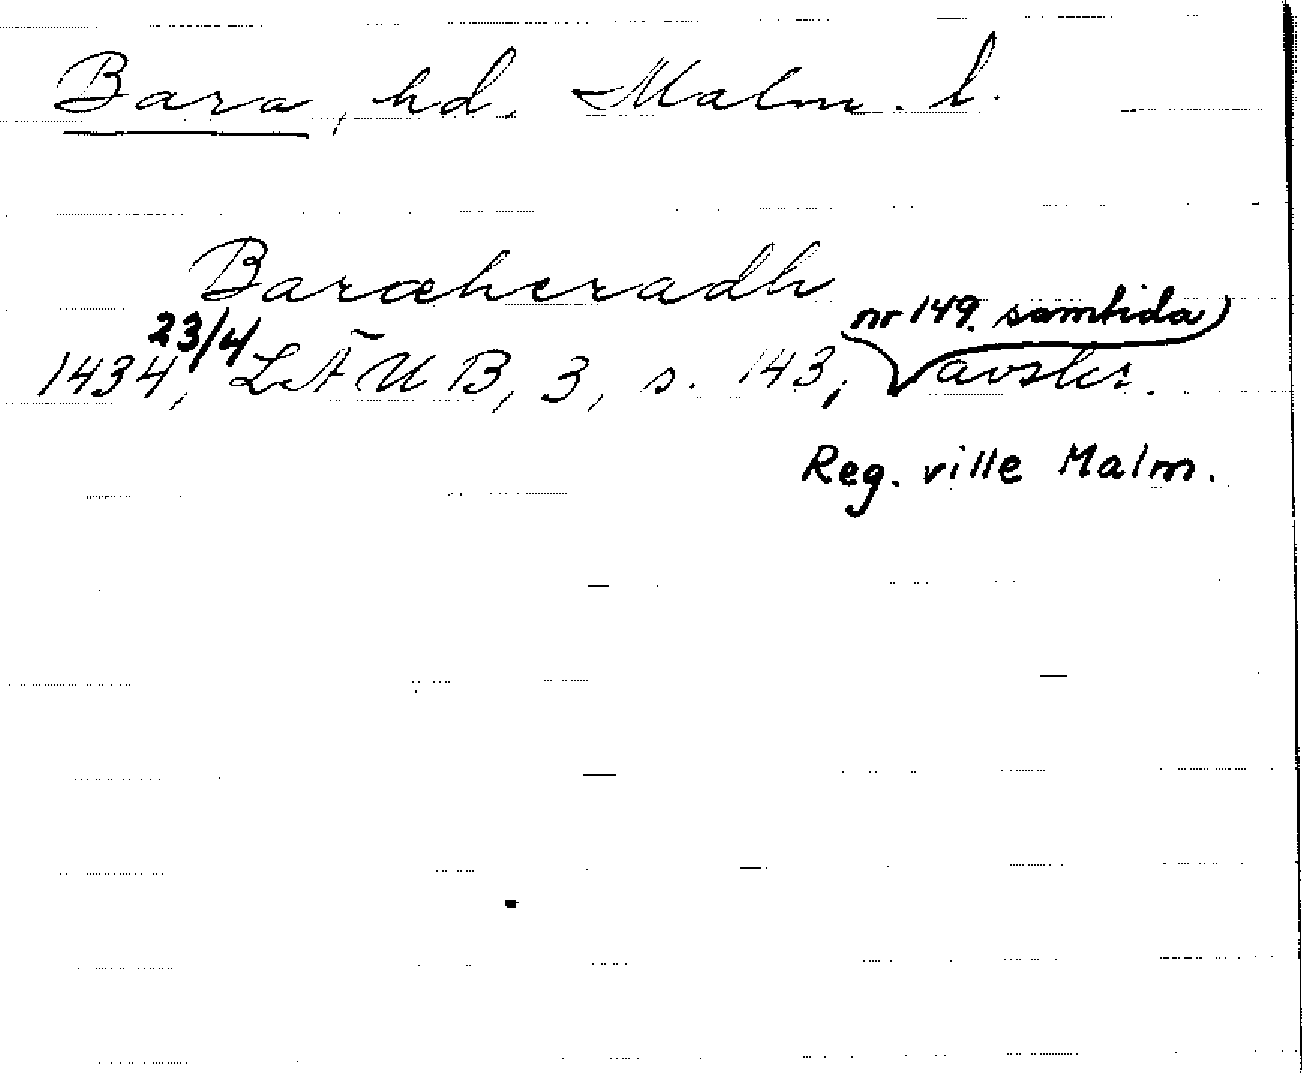 Bara, hd. Malm. l.
Baræheradh
1434 23/4, LÄUB, 3, s. 143, nr 149. samtida avskr.
Reg. ville Malm.